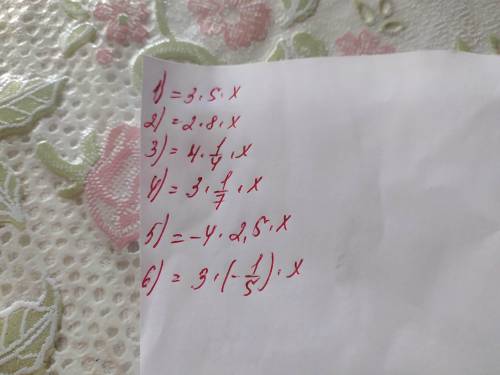 1) = 3 · 5 · x
2) = 2 · 8 · x
3) = 4 · 1/4 · x
4) = 3 · 1/7 · x
5) = -4 · 2,5 · x
6) = 3 · (-1/5) · x